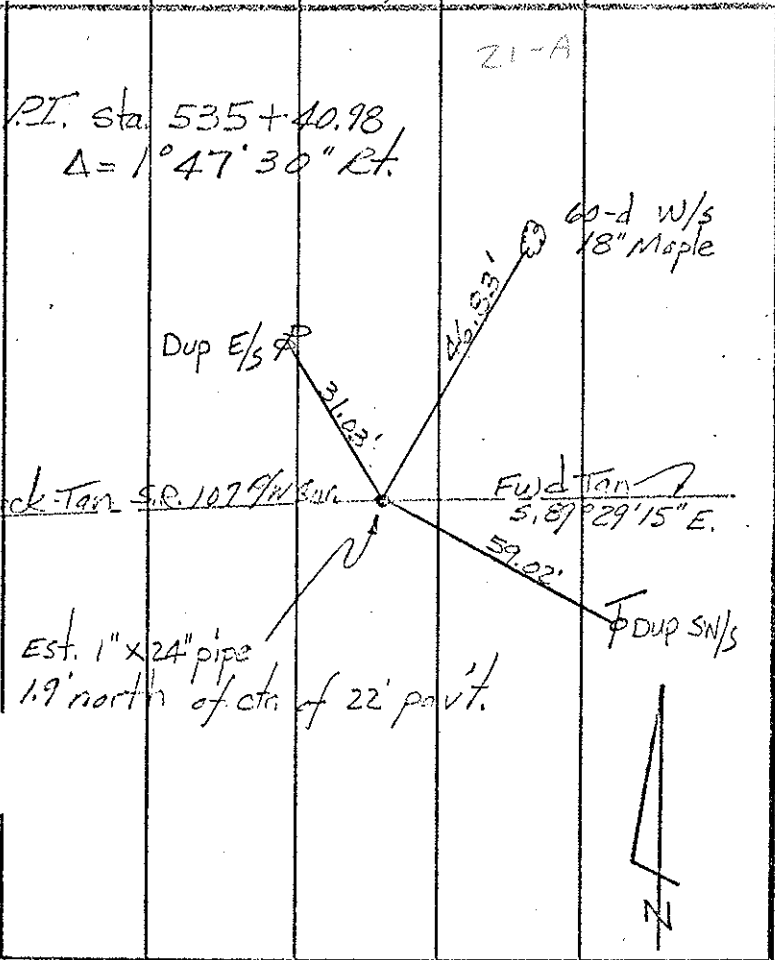 21-A
P.I. sta. 535+40.98
Δ= 1°47'30" Rt.
60-d W/s
18" Maple
46.83'
Dup E/s
31.03'
ck-Tan S.R. 107
Fwd Tan
S. 89°29'15" E.
59.02'
Dup SW/s
Est. 1" x 24" pipe
1.9' north of ctr. of 22' pav't.
N